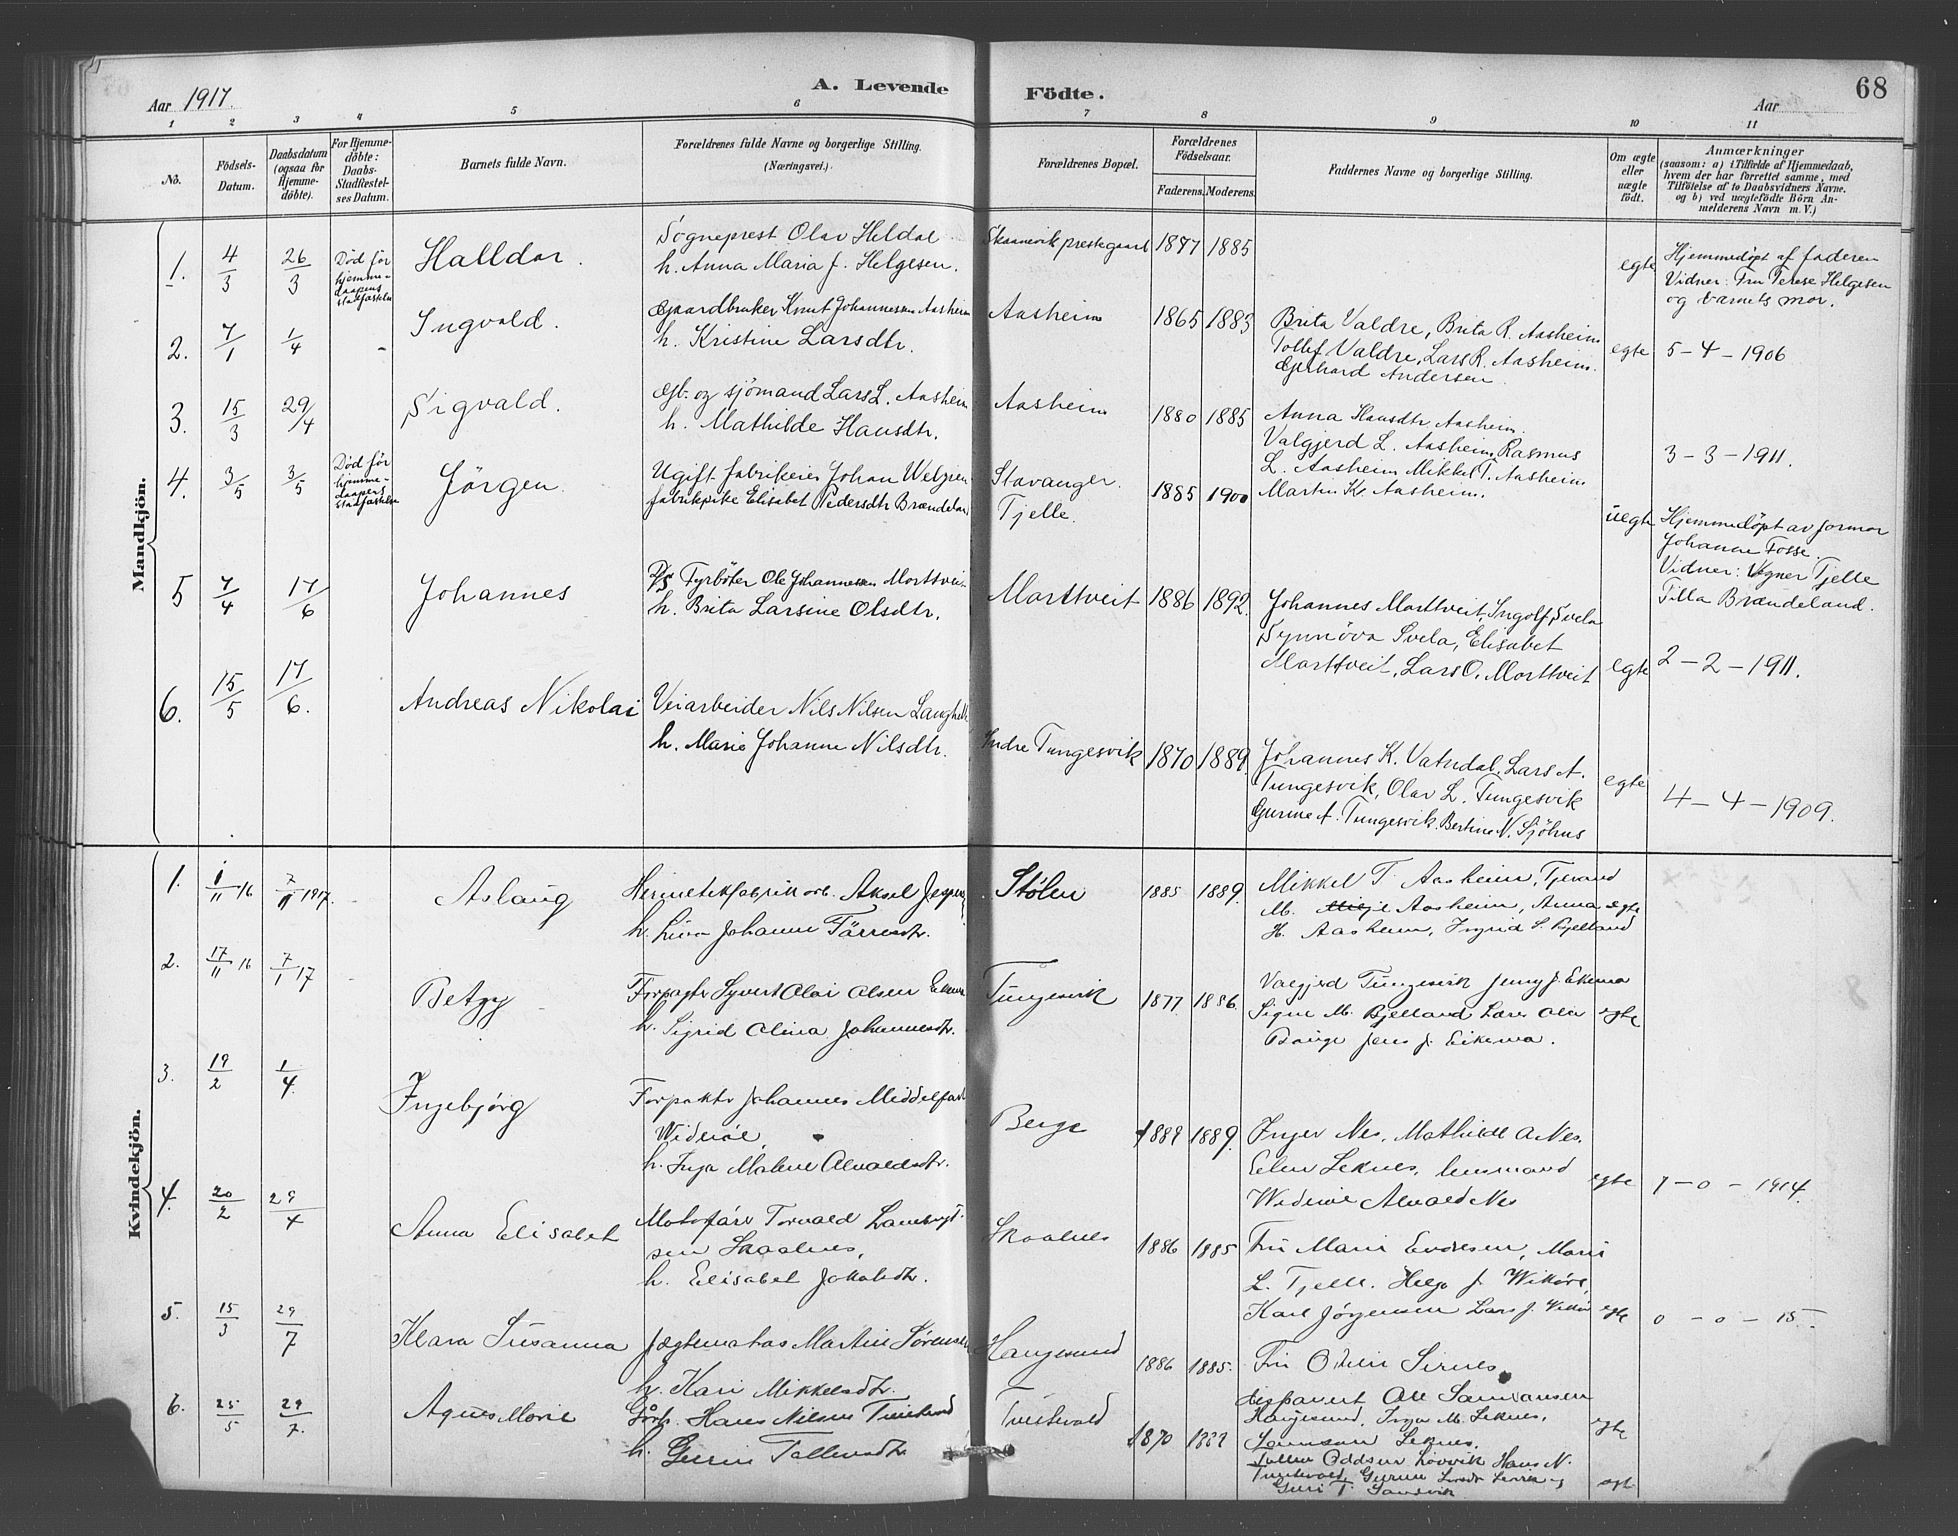 Aar 1917.
A. Levende
Födte.
Aar
68
1 2 3 4 5 6 7 8 9 10 11
No.
Födsels-
Datum.
Daabsdatum
(ogsaa för
Hjemme-
döbte).
For Hjemme-
döbte:
Daabs-
Stadfæstel-
ses Datum.
Barnets fulde Navn.
Forældrenes fulde Navne og borgerlige Stilling.
(Næringsvei.)
Forældrenes Bopæl.
Forældrenes
Födselsaar.
Faderens. Moderens.
Faddernes Navne og borgerlige Stilling.
Om ægte
eller
uægte
födt.
Anmærkninger
(saasom: a) i Tilfælde af Hjemmedaab,
hvem der har forrettet samme, med
Tilföielse af to Daabsvidners Navne.
og b) ved uægtefödte Börn An-
melderens Navn m. V.)
Mandkjön.
1. 4/3 26/3
Död för
hjemme-
daapens
stadfæstelse
Halldor.
Sogneprest Olav Heldal
h. Anna Maria f. Helgesen.
Skaanevik prestegaard 1877 1885
egte
Hjemmedøpt af faderen
Vidner: Fru Terese Helgesen
og barnets mor.
2. 7/1 1/4 -
Ingvald.
Gaardbruker Knut Johannessen Aasheim
h. Kristine Larsdtr.
Aasheim 1865 1883
Brita Valdre, Brita R. Aasheim
Tollef Valdre, Lars R. Aasheim.
Gerhard Andersen.
egte 5-4-1906
3. 15/3 29/4
Sigvald.
Gb. og sjömand Lars L. Aasheim
h. Mathilde Hansdtr.
Aasheim 1880 1885
Anna Hansdtr Aasheim.
Valgjerd L. Aasheim, Rasmus
L. Aasheim, Mikkel T. Aasheim
Martin K. Aasheim.
3-3-1911.
4. 3/5 3/5
Död för
hjemme-
daapens
stadfæstelse
Jörgen.
Ugift fabrikeier Johan
fabrikpike Elisabet Pedersdtr Brændeland
Stavanger.
Tjelle.
1885 1900
uegte
Hjemmedøpt av formor
Johanne Fosse.
Vidner: Agner Tjelle
Tilla Brændeland.
5 7/4 17/6
Johannes
D/S Fyrböter Ole Johannessen Marttveit
h. Brita Larsine Olsdtr.
Marttveit 1886 1892.
Johannes Marttveit, Ingolf Svela
Synnöva Svela, Elisabet
Marttveit, Lars O. Marttveit
egte 2-2-1911.
6. 15/5 17/6.
Andreas Nikolai
Veiarbeider Nils Nilsen
h. Marie Johanne Nilsdtr.
Indre Tungesvik 1870 1889.
Johannes K. Vatndal, Lars A.
Tungesvik, Olav L. Tungesvik
Gurine A. Tungesvik. Bertine N. Sjöhus
egte 4-4-1909.
Kvindekjön.
1. 1/11 16 7/ 1917.
Aslaug
Hermetikfabrikarb. Aksel
h. Johanne
Stølen 1885 1889.
Mikkel T. Aasheim,
M. Aasheim, Anna
H. Aasheim, Ingrid S. Bjelland
egte
2. 17/11 16 7/1 17
Betzy
Forpagter Syvert Olai Olsen
h. Sigrid Olina Johannesdtr.
Tungesvik 1877. 1886.
Valgjerd Tungesvik Jenny J. Eikemo
Signe M. Bjelland
Jens J. Eikemo.
egte
3. 19/2 1/4
Ingebjørg
Forpakter Johannes
Widerøe,
h. Inga Malene
Berge 1889 1889.
Inger Nes, Mathilde A. Nes.
Elen Leknes, lensmand
Widerøe Nes
egte 7-0-1914.
4. 20/2 29/4
Anna Elisabet
Torvald
sen Skaalnes,
h. Elisabet Jakobsdtr.
Skaalnes 1886 1885
Fru Marie Endresen, Marie
L. Tjelle. Helge J. Wiköre,
Karl Jørgensen Lars J.
egte 0-0-15
5. 15/3 29/7
Klara Susanna
Jægtematros Martin Sørensen
h. Kari Mikkelsdtr.
Haugesund 1886 1885.
Fru
Ole
Haugesund, Inga M. Leknes,
Leknes.
egte
6. 25/5 29/7.
Agnes Marie
Hans Nilsen
h.
1870
Hans N.
Gurine
egte